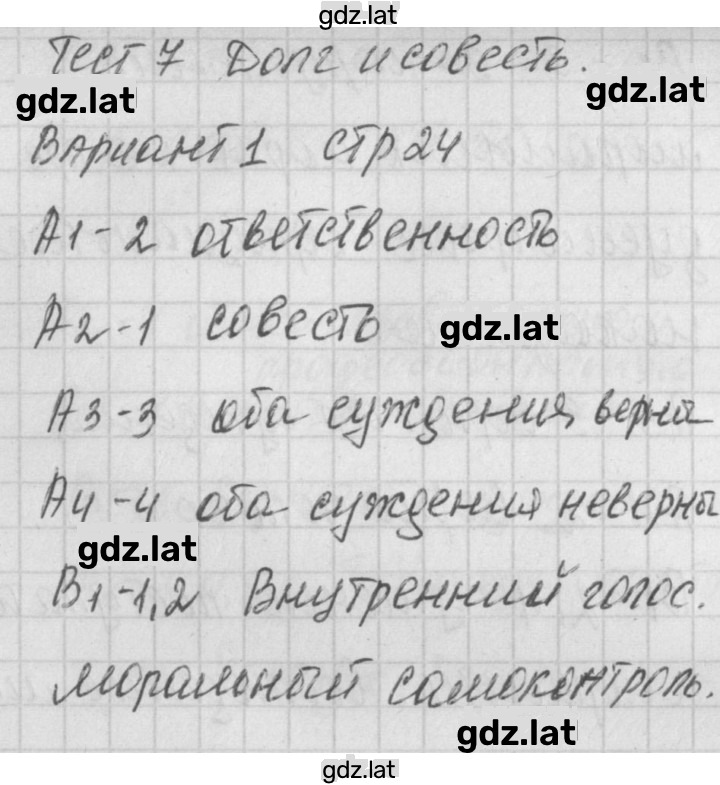 gdz.lat
Тест 7 Долг и совесть.
gdz.lat
gdz.lat
Вариант 1 стр 24
А1-2 ответственность
А2-1 совесть
gdz.lat
А3-3 оба суждения верны
А4-4 оба суждения неверны
gdz.lat
В1-1,2 Внутренний голос.
моральный самоконтроль.
gdz.lat
gdz.lat